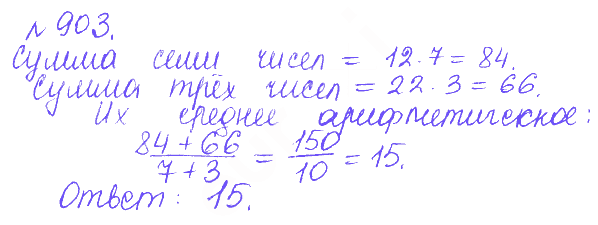 № 903.
Сумма семи чисел = 12·7 = 84.
Сумма трёх чисел = 22·3 = 66.
Их среднее арифметическое:
84 + 66 / 7 + 3 = 150 / 10 = 15.
Ответ: 15.